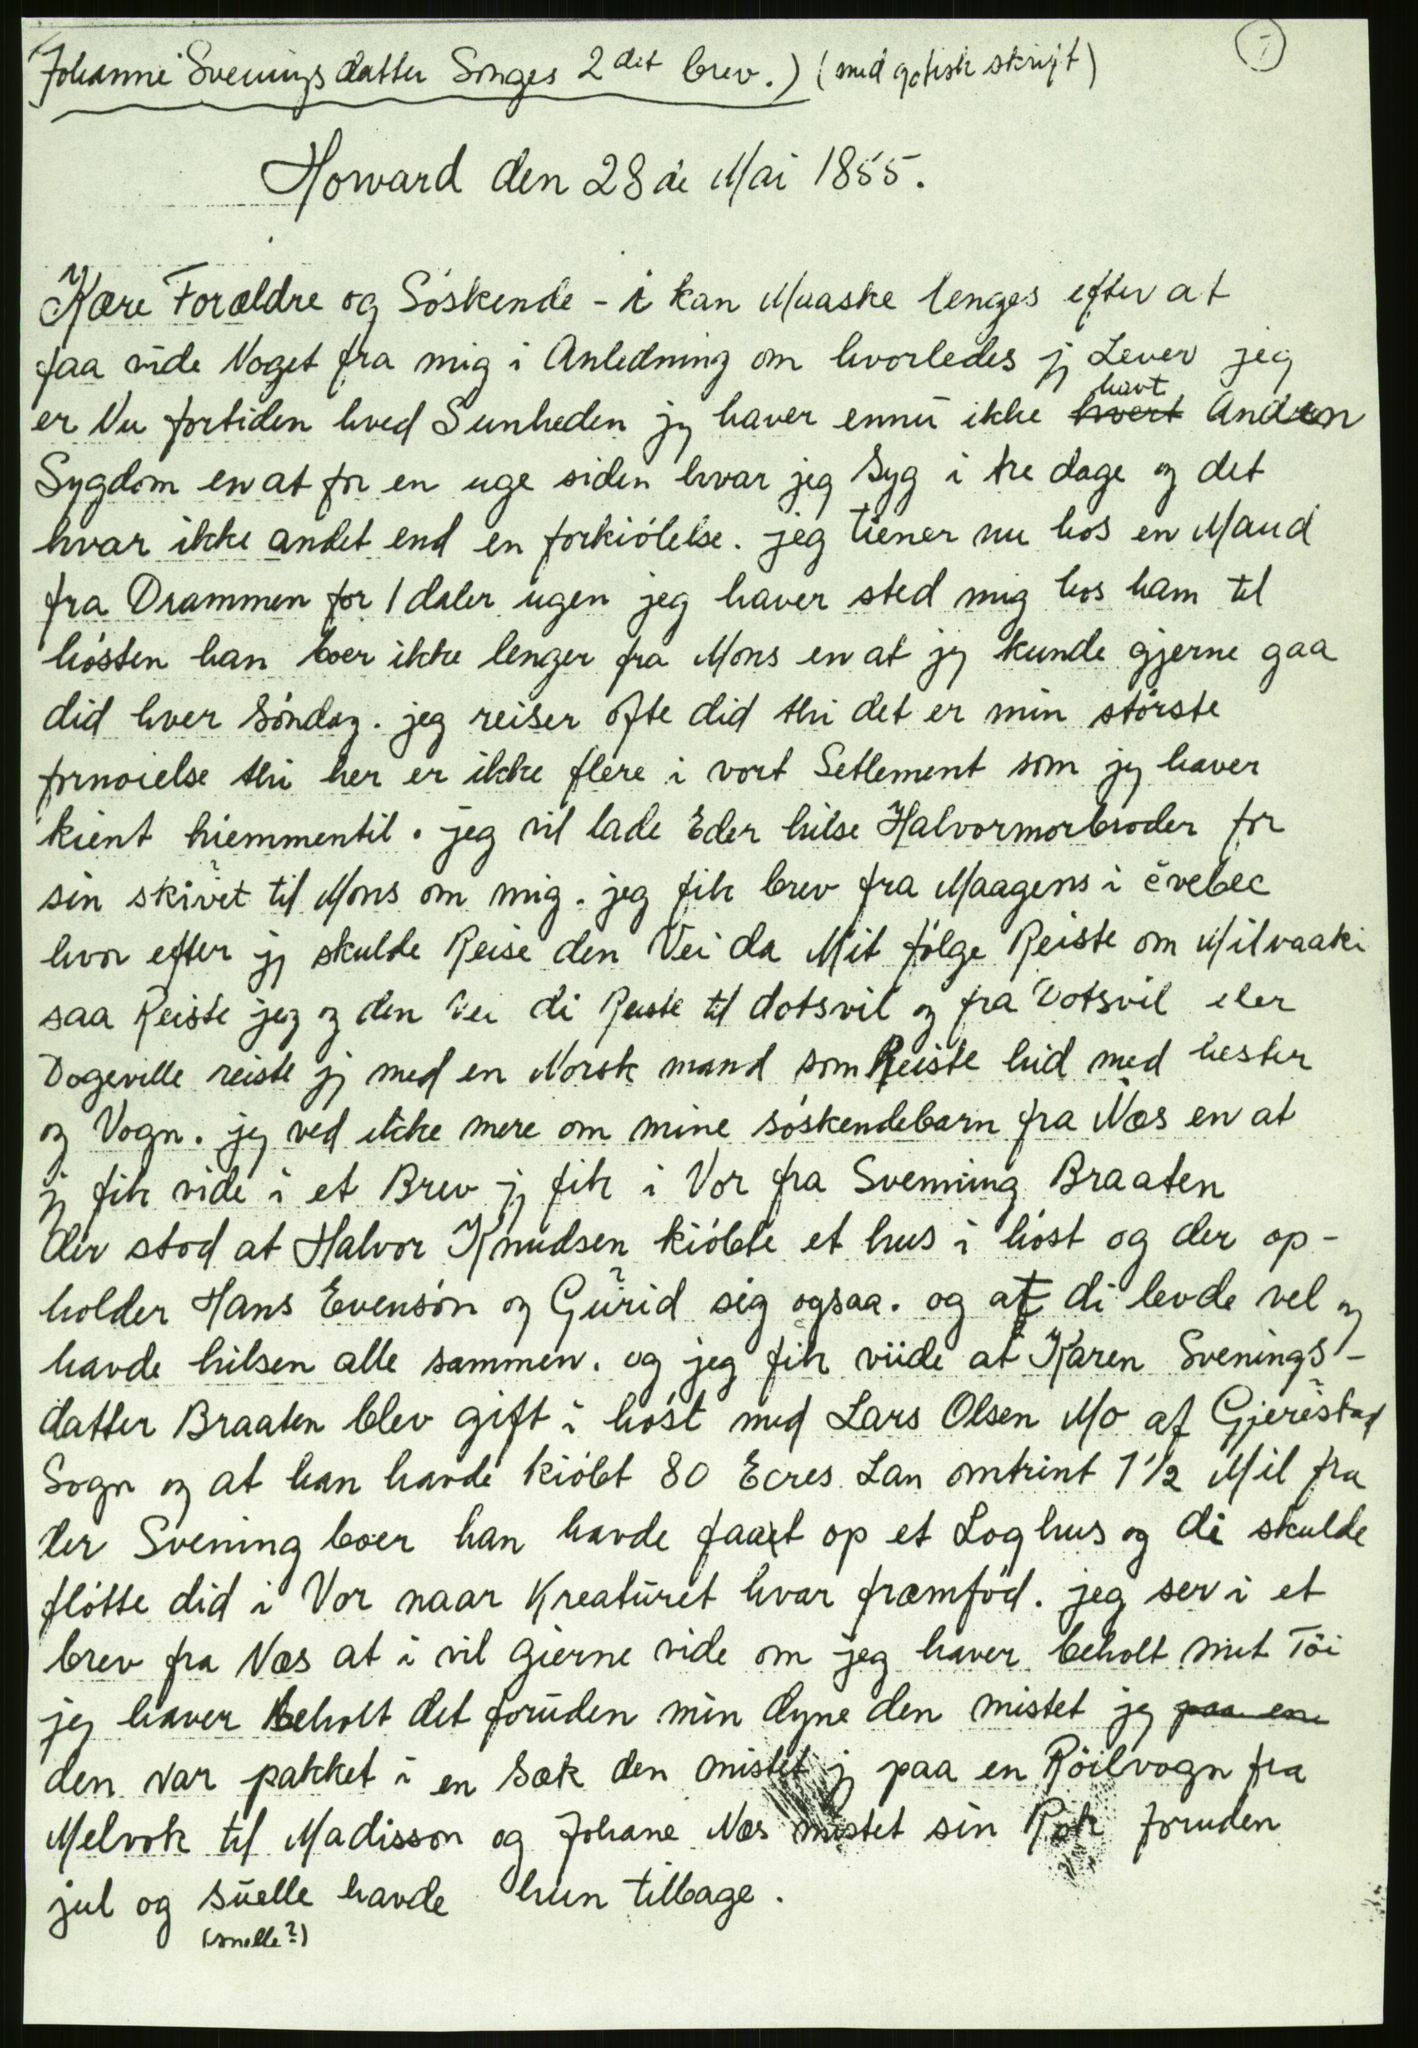 Johanne Sveningsdatter Songes 2det brev.) (med gotisk skrift)
Howard den 28de Mai 1855.
Kære Forældre og Söskende - i kan Maaske lenges efter at
faa vide Noget fra mig i Anledning om hvorledes jg Lever jeg
er Nu fortiden hved Sunheden jg haver ennu ikke hvert havt Anden
Sygdom en at for en uge siden hvar jeg Syg i tre dage og det
hvar ikke andet end en forkiölelse. jeg tiener nu hos en Mand
fra Drammen for 1 daler ugen jeg haver sted mig hos ham til
hösten han boer ikke lenger fra Mons en at jg kunde gjerne gaa
did hver Söndag. jeg reiser ofte did thi det er min störste
fornoielse thi her er ikke flere i vort Setlement som jg haver
kient hiemmentil. jeg vil lade Eder hilse Halvormorbroder for
sin skivet til Mons om mig. jeg fik brev fra Maagens i Evebec
hvor efter jg skulde Reise den Vei da Mit fölge Reiste om Milvaaki
saa Reiste jeg og den Vei di Reiste til dotsvil og fra Dotsvil eler
Dogeville reiste jg med en Norsk mand som Reiste hid med hester
og Vogn. jeg ved ikke mere om mine söskendebarn fra Næs en at
jg fik vide i et Brev jg fik i Vor fra Svenning Braaten
der stod at Halvor Knudsen kiöbte et hus i höst og der op-
holder Hans Evensön og Gurid sig ogsaa. og at di levde vel og
havde hilsen alle sammen. og jeg fik viide at Karen Svenings-
datter Braaten blev gift i höst med Lars Olsen Mo af Gjerestad
Sogn og at han havde kiöbt 80 Ecres Lan omtrint 1 1/2 Mil fra
der Svening boer han havde faaet op et Loghus og di skulde
flötte did i Vor naar Kreaturet hvar fræmföd. jeg ser i et
brev fra Næs at i vil gierne vide om jeg haver beholt mit Töi
jeg haver beholt det foruden min dyne den mistet jeg paa en
den var pakket i en Sæk den mistet jg paa en Röilvogn fra
Melvok til Madisson og Johane Næs mistet sin Rok foruden
jul og suelle havde hun tilbage.
(snelle?)